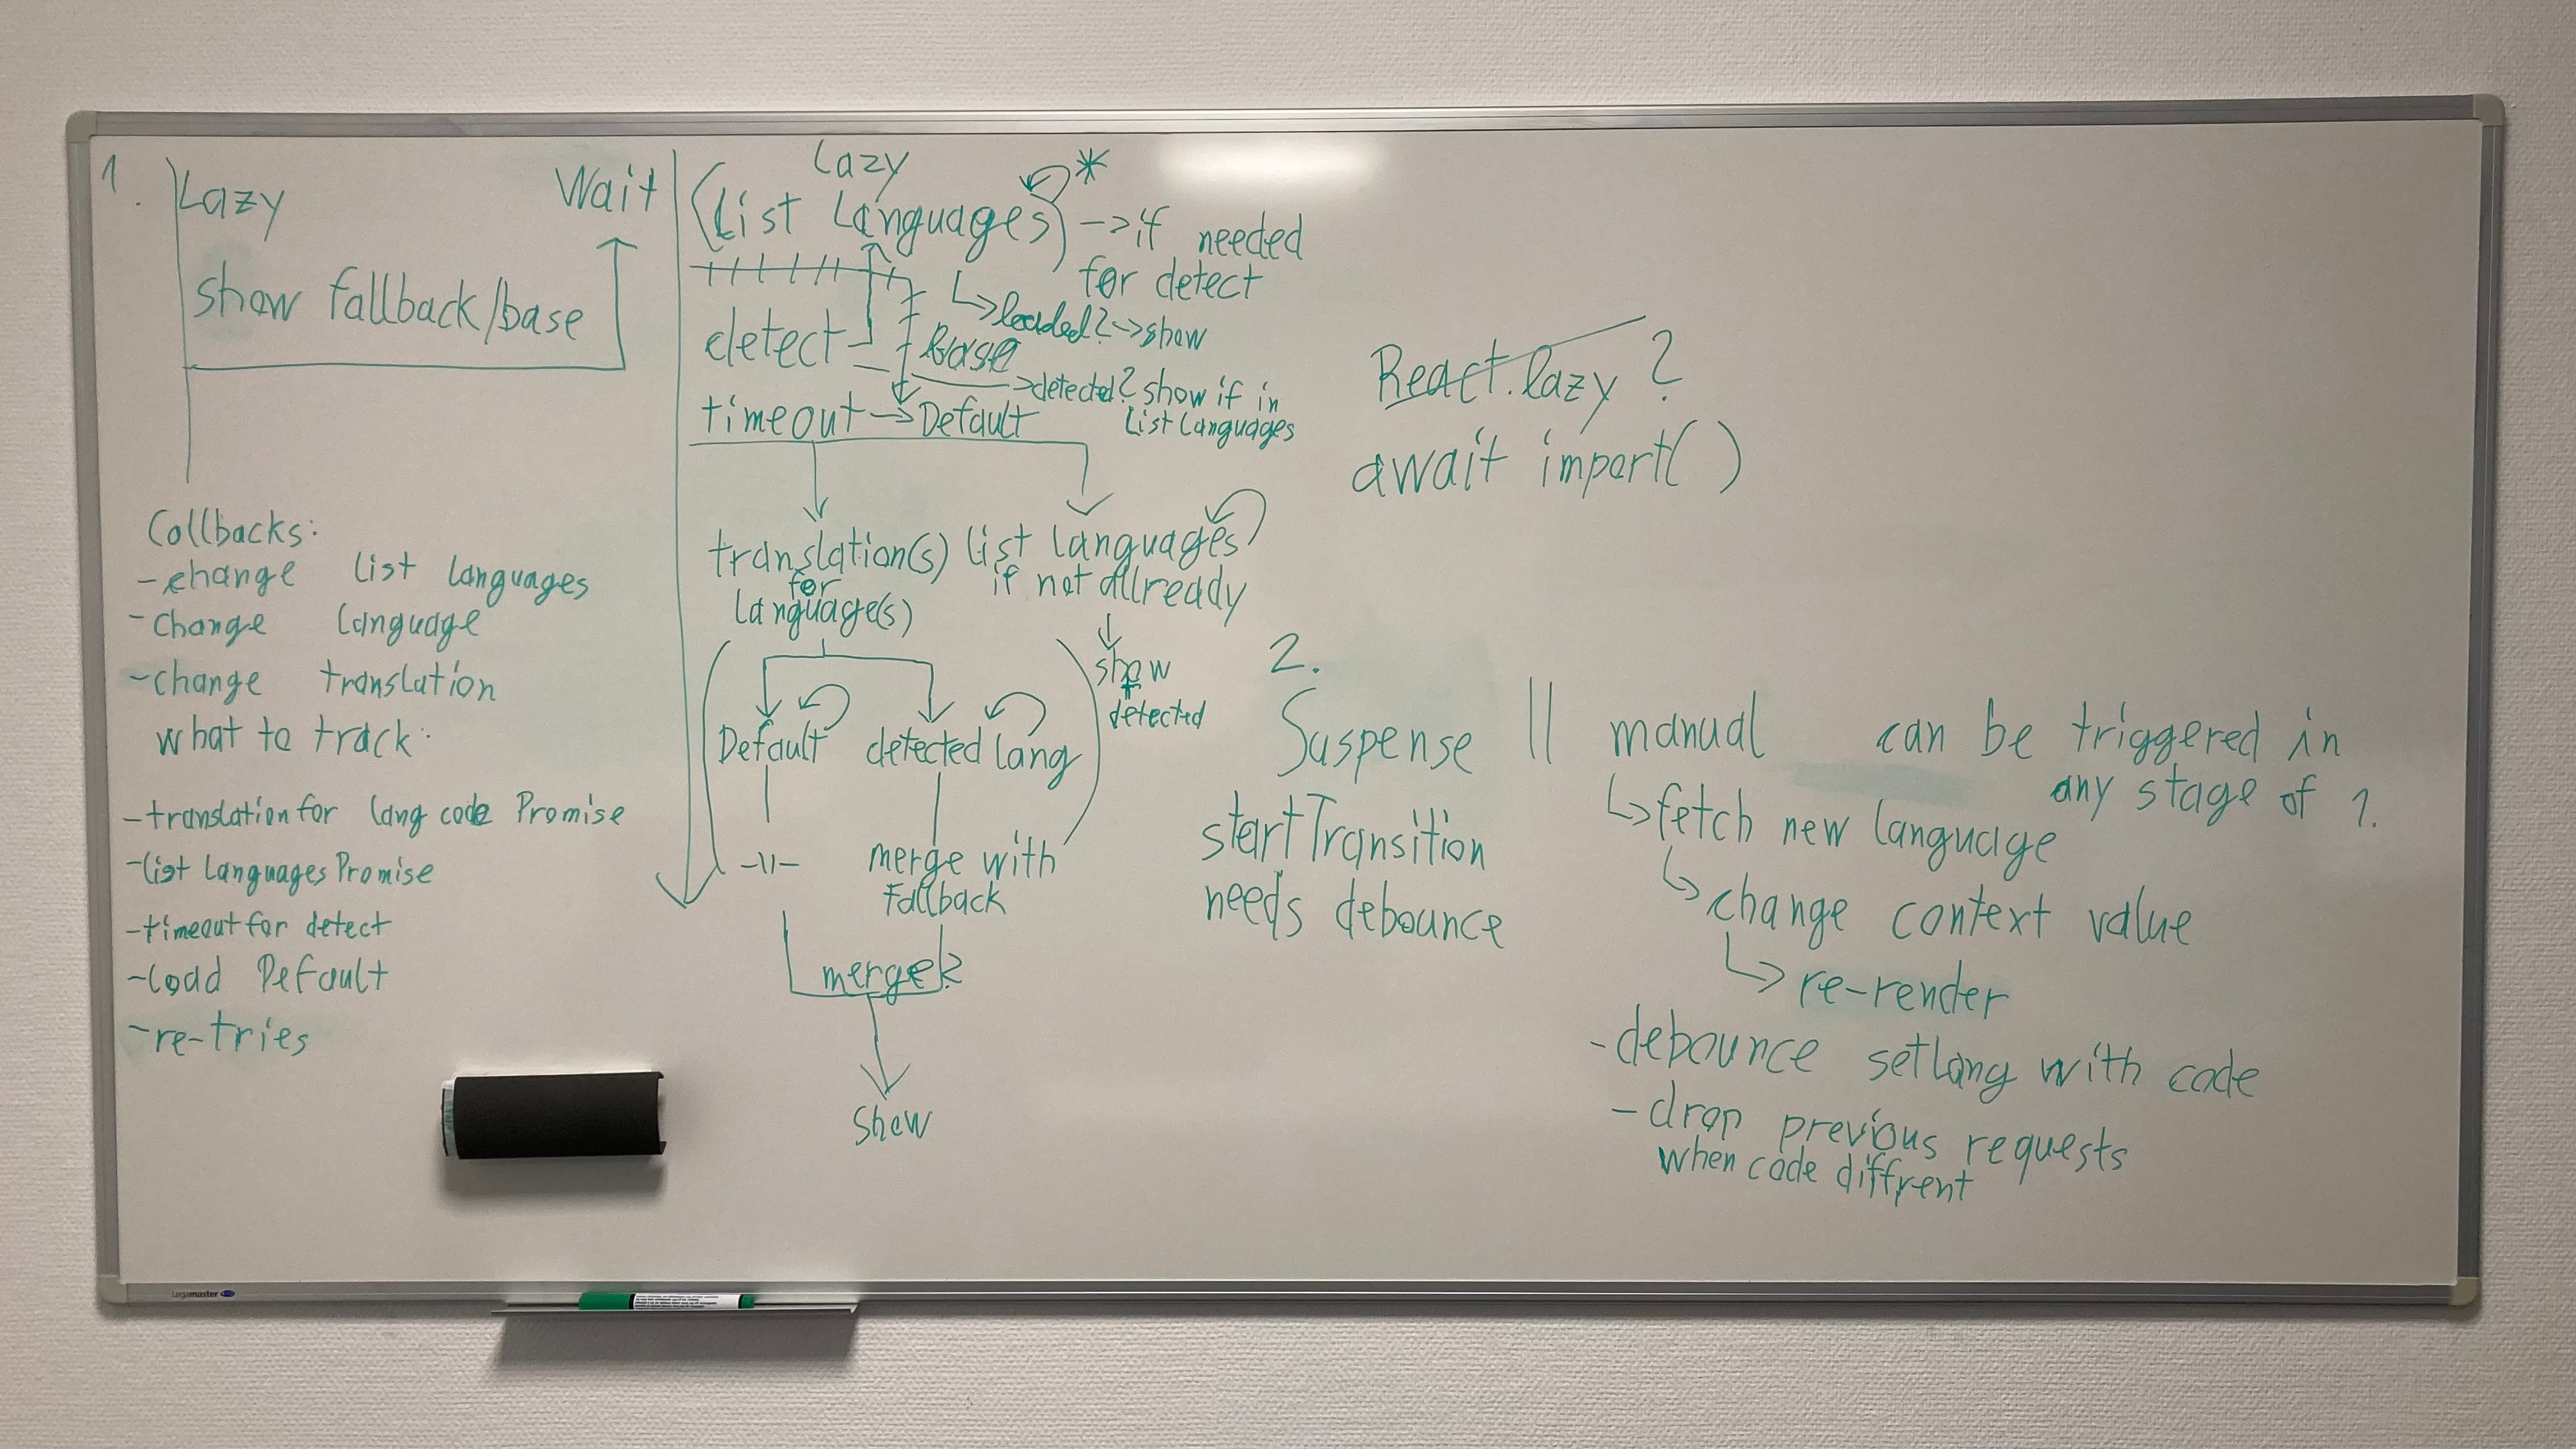 1.
Lazy
Wait
show fallback/base
Callbacks:
- change list languages
- change language
- change translation
what to track:
- translation for lang code Promise
- list languages Promise
- timeout for detect
- load Default
- re-tries
Lazy
(List Languages) -> if needed
for detect
*
loaded? -> show
detect
base
detected? show if in
List Languages
timeout -> Default
translation(s)
for
language(s)
list languages
if not allready
show
detected
Default
detected lang
-11-
merge with
fallback
merge?
show
React.lazy ?
await import( )
2.
Suspense || manual
startTransition
needs debounce
can be triggered in
any stage of 1.
fetch new language
change context value
re-render
- debounce setLang with code
- drop previous requests
when code diffrent
Legamaster